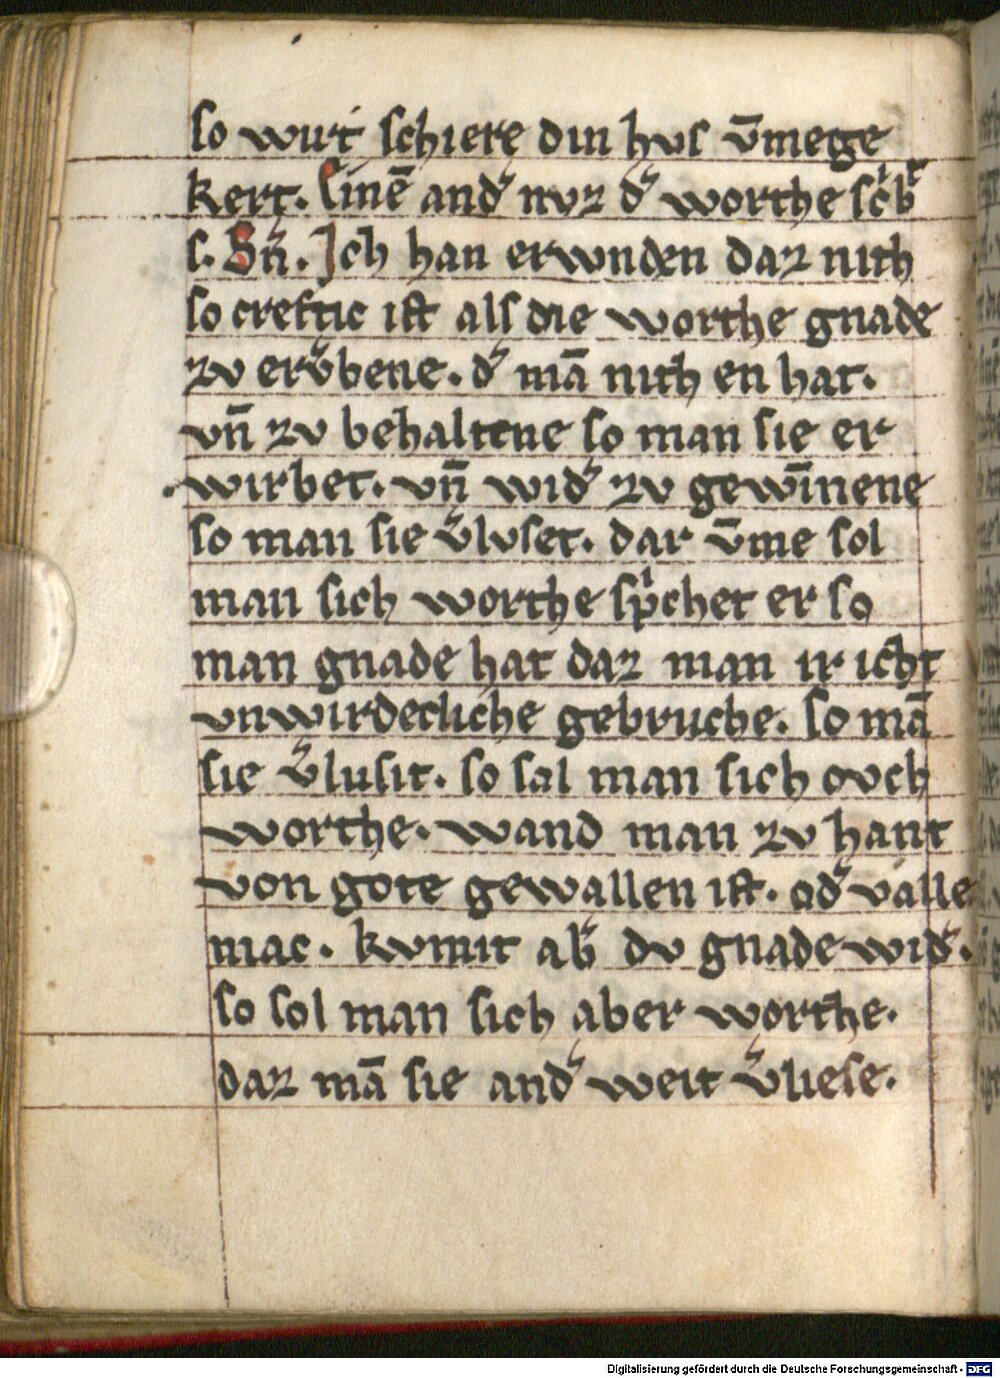 so wirt schiere din hus v̄mege
kert. Einē and᷑ nvz d᷑ worthe sc͛bt
s. Bn̄. Ich han erwnden daz nith
so creftic ist als die worthe gnade
zv erv᷑bene. d᷑ mā nith en hat.
vn̄ zv behaltene so man sie er
wirbet. vn̄ wid᷑ zv gewīnene
so man sie v᷑lvset. dar v̄me sol
man sich worthe spͥchet er so
man gnade hat daz man ir icht
vnwirdecliche gebruche. so mā
sie v᷑lusit. so sal man sich ovch
worthe. wand man zv hant
von gote gewallen ist. od᷑ valle
mac. kvmit ab᷑ dv gnade wid᷑.
so sol man sich aber worthe.
daz mā sie and᷑ weit v᷑liese.
Digitalisierung gefördert durch die Deutsche Forschungsgemeinschaft - DFG